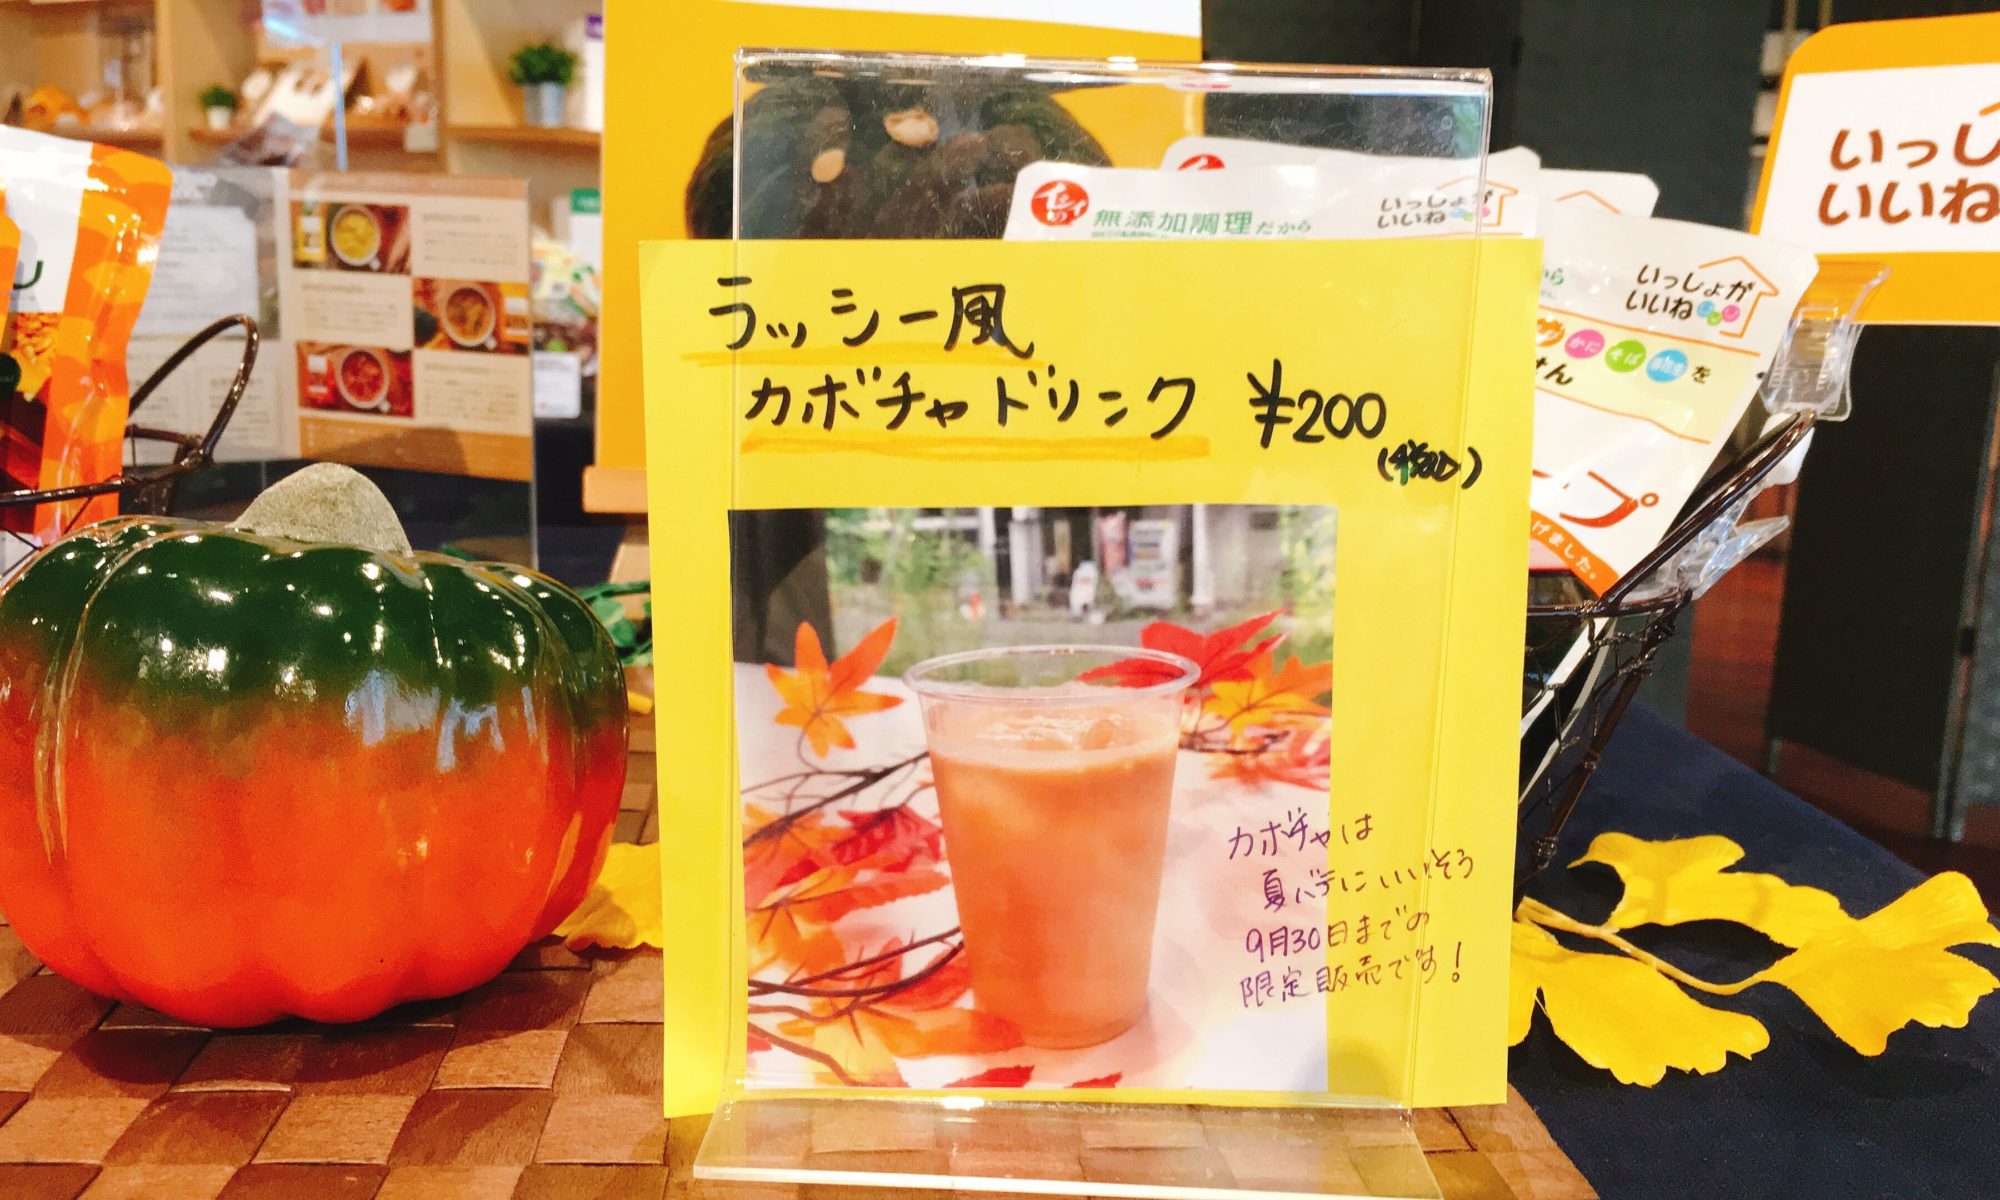 ラッシー風
カボチャドリンク ¥200
(税込)
カボチャは
夏バテにいいそう
9月30日までの
限定販売です!
イシイの
無添加調理だから
いっしょが
いいね
いっしょが
いいね
かに そば
を
せん
ープ
げました。
いっしょ
いいね